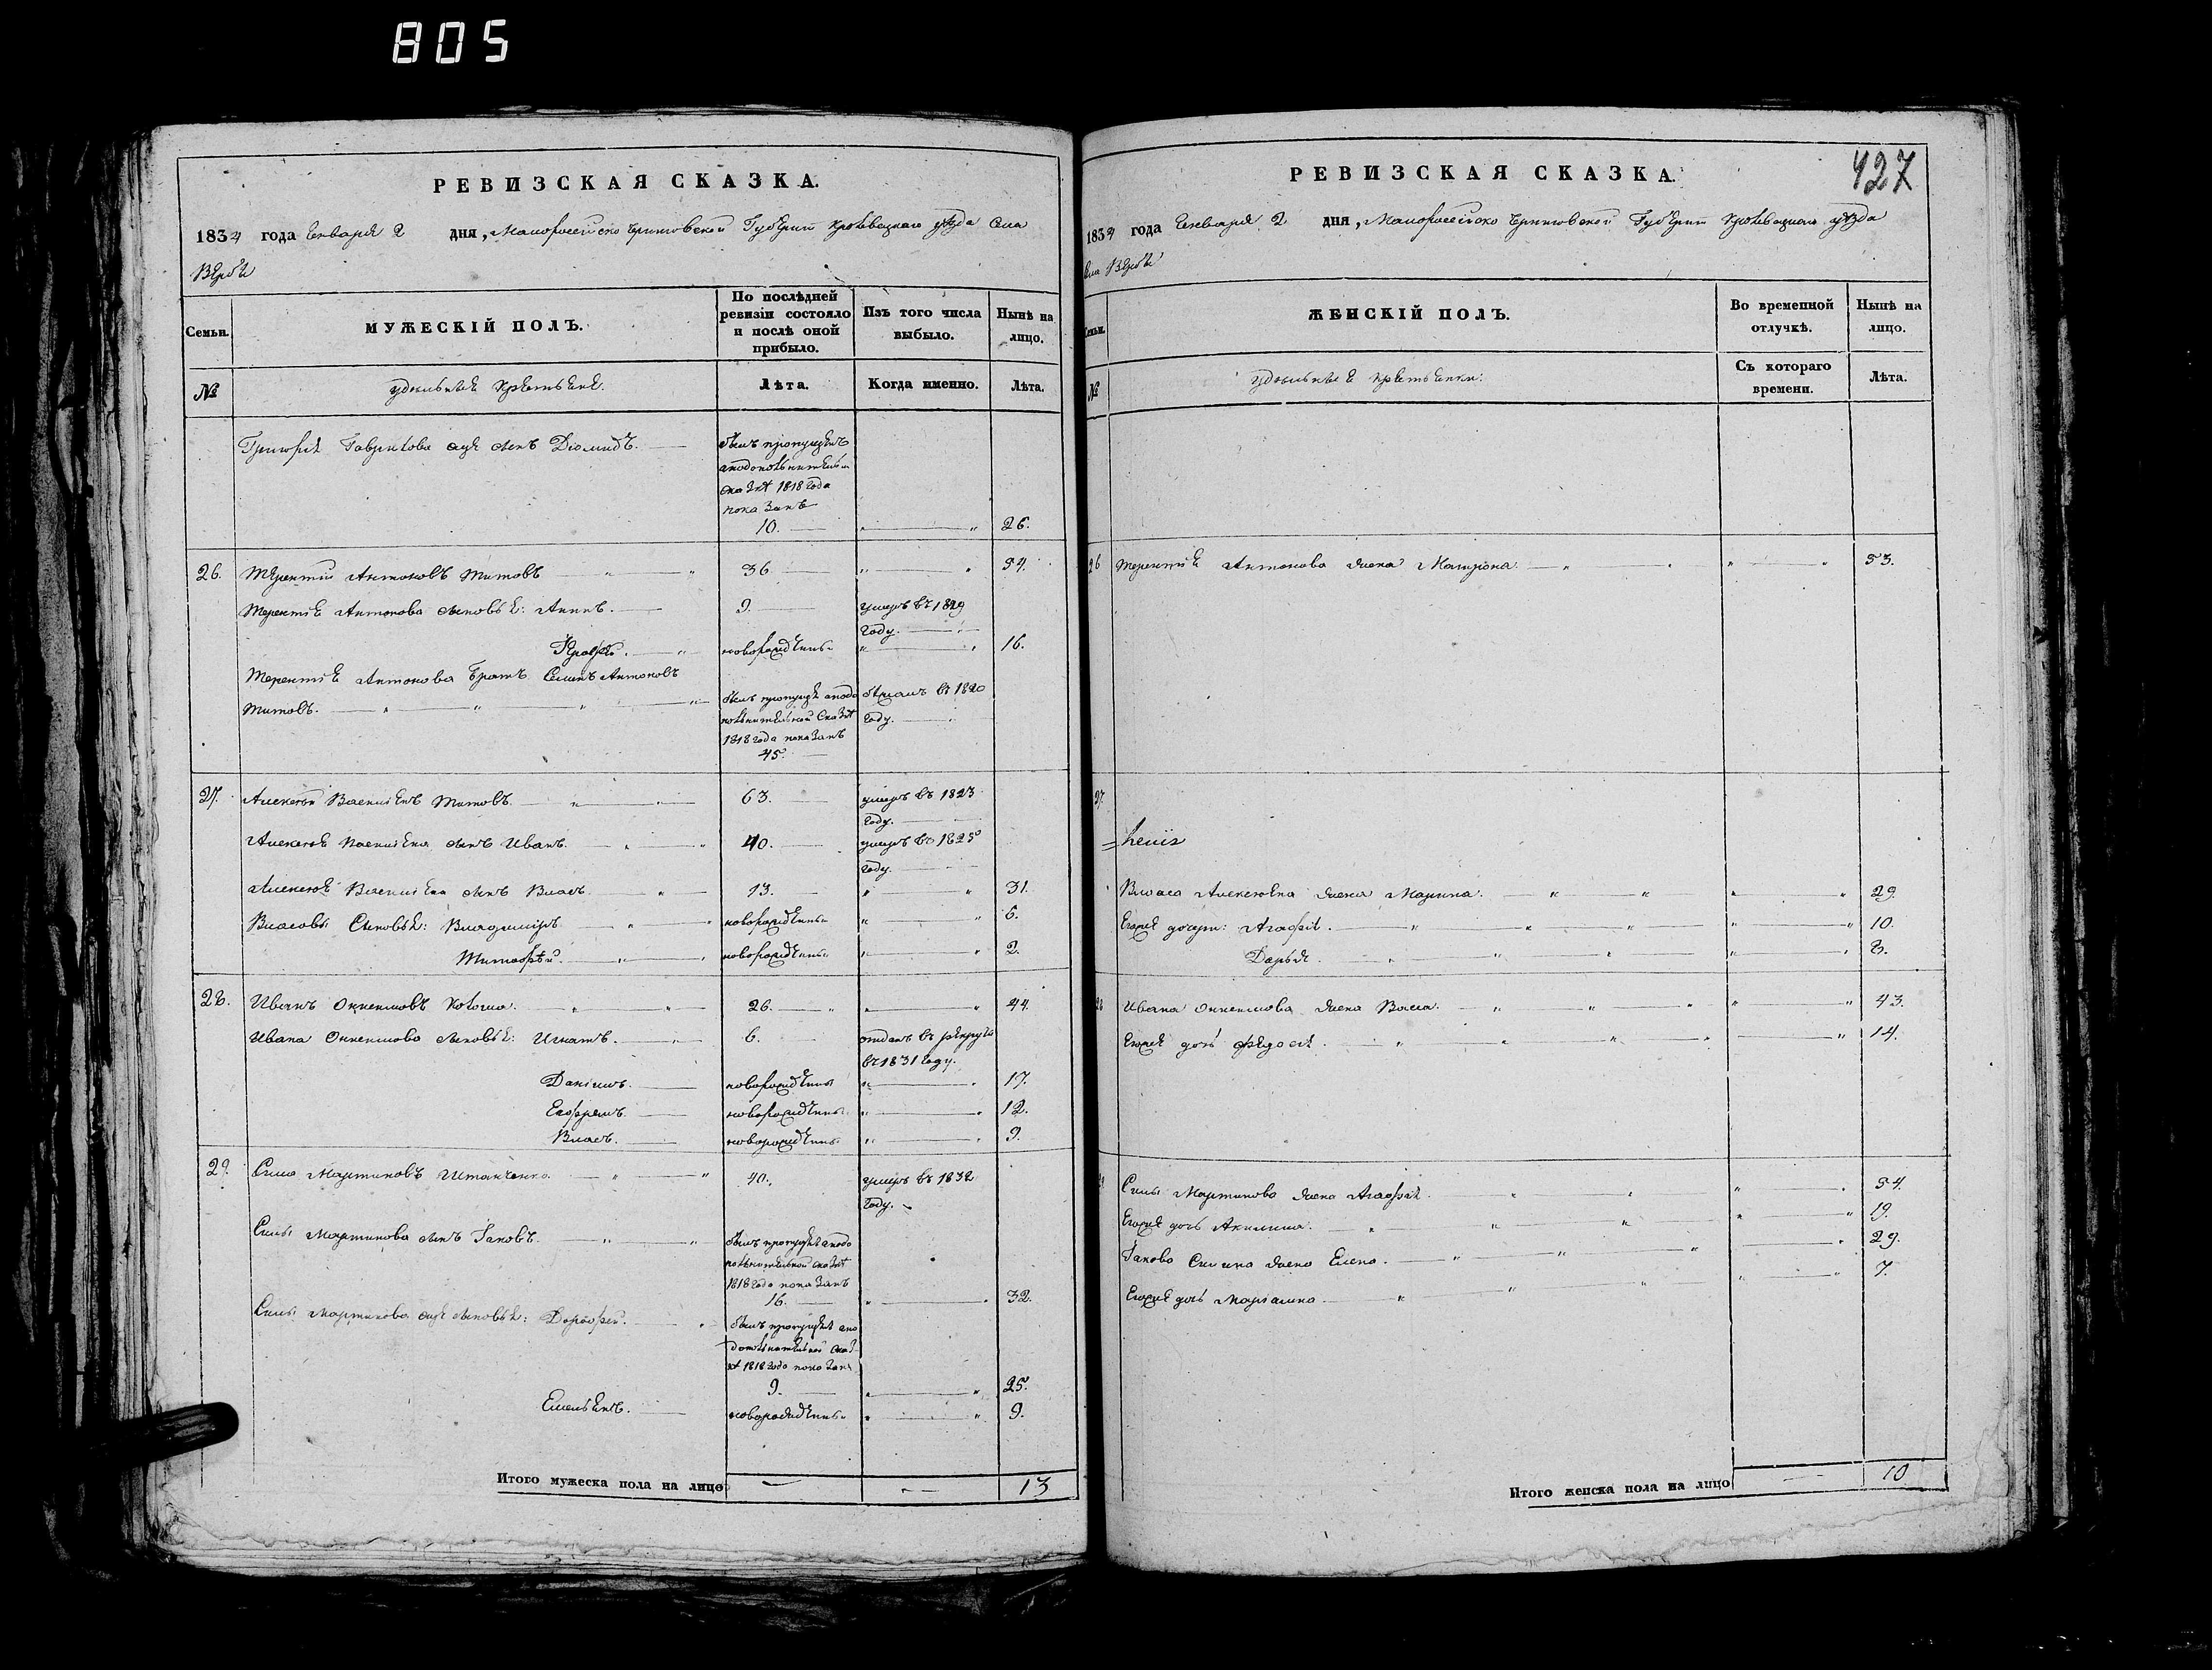 805
РЕВИЗСКАЯ СКАЗКА.
1834 года Генваря 2 дня, Малороссийско Черниговской Губернии Кролевецкаго уезда Села
Вербы
Семьи.
МУЖЕСКІЙ ПОЛЪ.
По послѣдней ревизіи состояло и послѣ оной прибыло.
Изъ того числа выбыло.
Нынѣ на лицо.
№
удельные крестьяне.
Лѣта.
Когда именно.
Лѣта.
Григорія Гаврилова сынъ Діомидъ.
былъ пропущенъ
сказкѣ 1818 года
показанъ
10. 26.
26. Терентій Антоновъ Титовъ 36 54.
Терентія Антонова сыновья: 9. умеръ въ 1829
году.
новорожденны 16.
Терентія Антонова братъ Семенъ Антоновъ
Титовъ. былъ пропущ въ 1820
сказкѣ году.
1818 года показанъ
45.
27. Алексѣй Васильевъ Титовъ 63. умеръ въ 1823
году.
Алексея Васильева сынъ Иванъ. 40. умеръ въ 1825
году.
Алексея Васильева сынъ Власъ 13. 31.
Власовы Сыновья: Владимиръ новорожденны
Тимофѣй. новорожденны 2.
28. Иванъ 26. 44.
Ивана сыновья: Игнатъ. 6. отданъ въ рекруты
въ 1831 году.
Даніилъ. новорожденны 17.
Ефремъ. новорожденны 12.
Власъ. новорожденны 9.
29. Сила Мартиновъ 40. умеръ въ 1832
году.
Силы Мартинова сынъ Іаковъ. былъ пропущ
сказкѣ
1818 года показанъ
16. 32.
Силы Мартинова сыновья: Дорофей. былъ пропущ
1818 года показан
9. 25.
Емельянъ. новорожденны 9.
Итого мужеска пола на лицо 13
427
РЕВИЗСКАЯ СКАЗКА.
1834 года Генваря 2 дня, Малороссийско Черниговской Губернии Кролевецкаго уезда
Села Вербы
Семьи.
ЖЕНСКІЙ ПОЛЪ.
Во временной отлучкѣ.
Нынѣ на лицо.
№
удельные крестьянки.
Съ котораго времени.
Лѣта.
26 Терентія Антонова жена Матрона 53.
27.
Власа Алексѣева жена Марина. 29.
Егоже дочери: Агафія. 10.
Дарья. 8.
28 Ивана жена Васса. 43.
Егоже дочь Федосія. 14.
Силы Мартинова жена Агафія. 54.
Егоже дочь Акилина. 19.
Іакова Силина жена Елена. 29.
Егоже дочь Маріамна 7.
Итого женска пола на лицо 10